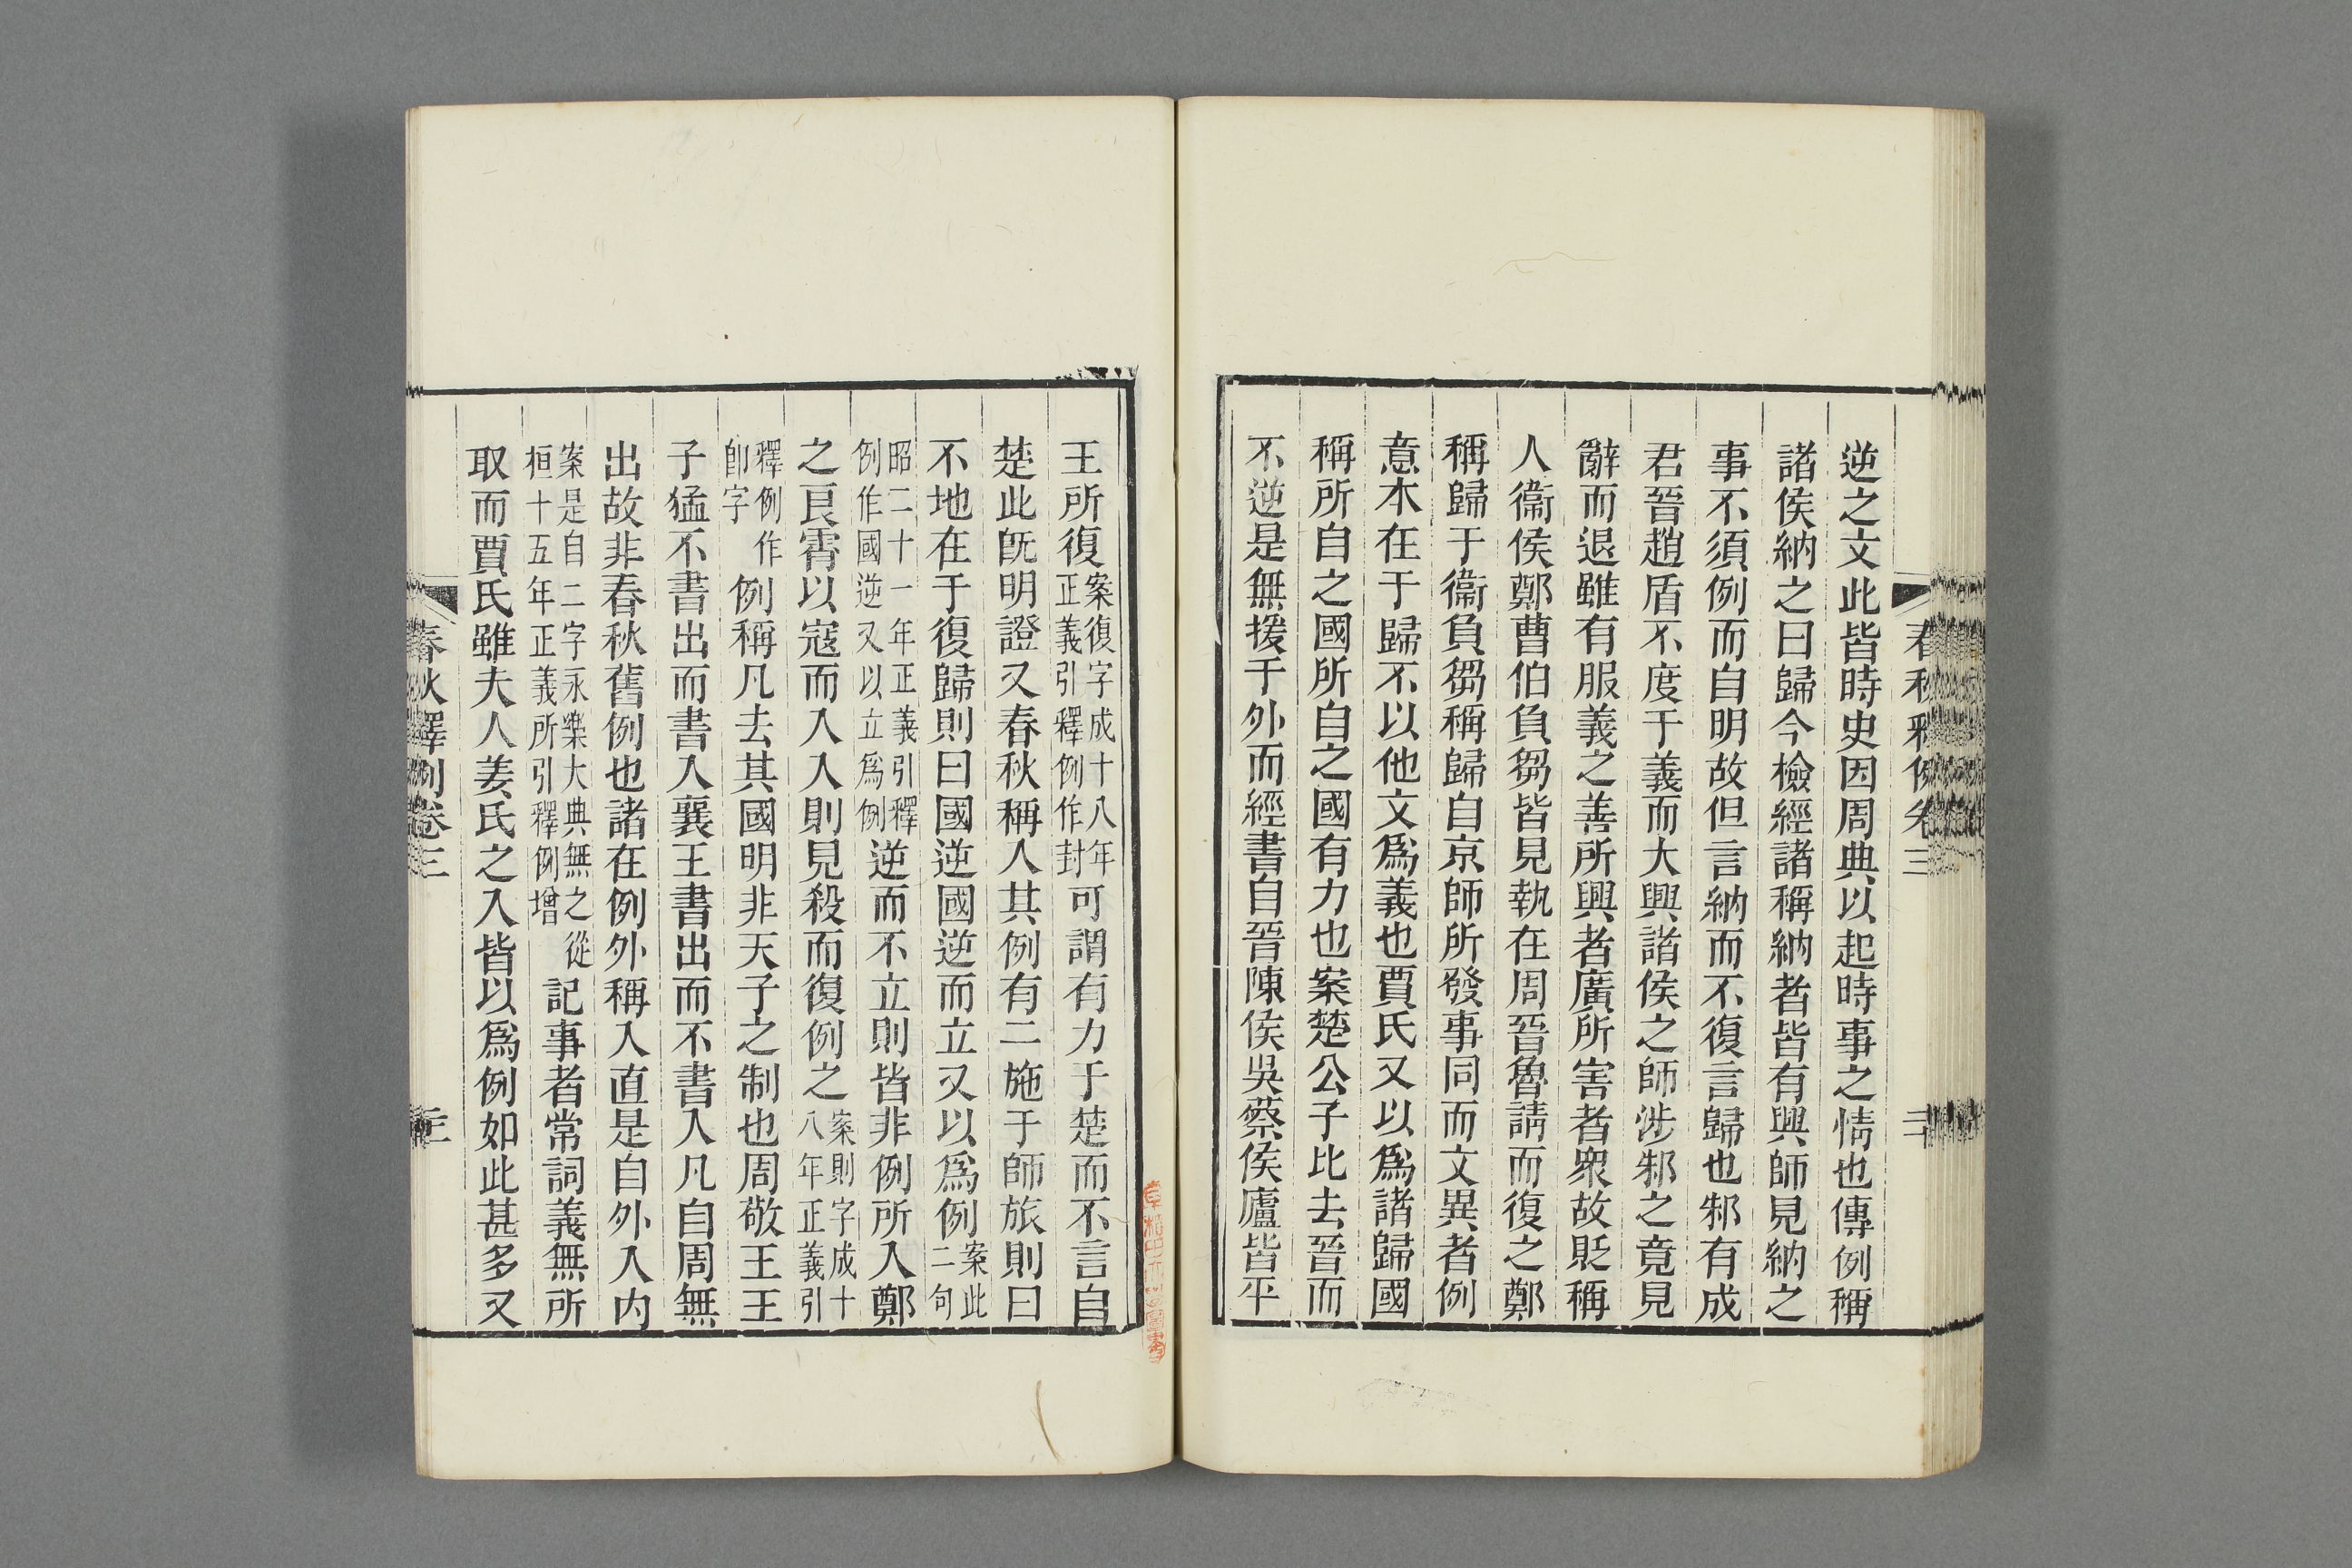 逆之文此皆時史因周典以起時事之情也傳例稱
諸侯納之曰歸今檢經諸稱納者皆有興師見納之
事不須例而自明故但言納而不復言歸也邾有成
君晉趙盾不度于義而大興諸侯之師涉邾之竟見
辭而退雖有服義之善所興者廣所害者衆故貶稱
人衞侯鄭曹伯負芻皆見執在周晉魯請而復之鄭
稱歸于衞負芻稱歸自京師所發事同而文異者例
意本在于歸不以他文爲義也賈氏又以爲諸歸國
稱所自之國所自之國有力也案楚公子比去晉而
不逆是無援于外而經書自晉陳侯吳蔡侯廬皆平
王所復
案復字成十八年
正義引釋例作封
可謂有力于楚而不言自
楚此旣明證又春秋稱入其例有二施于師旅則曰
不地在于復歸則曰國逆國逆而立又以爲例
案此
二句
昭二十一年正義引釋
例作國逆又以立爲例
逆而不立則皆非例所入鄭
之良霄以寇而入入則見殺而復例之
案則字成十
八年正義引
釋例作
卽字
例稱凡去其國明非天子之制也周敬王王
子猛不書出而書入襄王書出而不書入凡自周無
出故非春秋舊例也諸在例外稱入直是自外入内
案是自二字永樂大典無之從
桓十五年正義所引釋例增
記事者常詞義無所
取而賈氏雖夫人姜氏之入皆以爲例如此甚多又
春秋釋例卷三